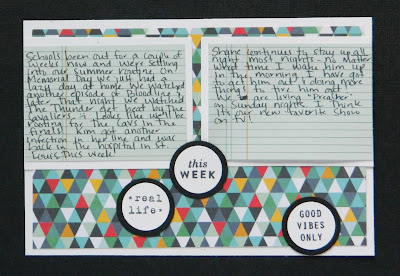 Schools been out for a couple of
weeks now and we're settling
into our summer routine. On
Memorial Day we just had a
lazy day at home. We watched
another episode of Bloodline &
later that night we watched
The Thunder get beat by the
Cavaliers. It looks like we'll be
rooting for the Cavs in the
finals! Kim got another
infection in her line and was
back in the hospital in St.
Louis this week!
Shane continues to stay up all
night most nights - no matter
what time I wake him up
in the morning. I have got
to get him out & doing more
things to tire him out!
We are living "Preacher"
on Sunday nights. I think
it's our new favorite show
on TV.
this
WEEK
*real
life*
GOOD
VIBES
ONLY